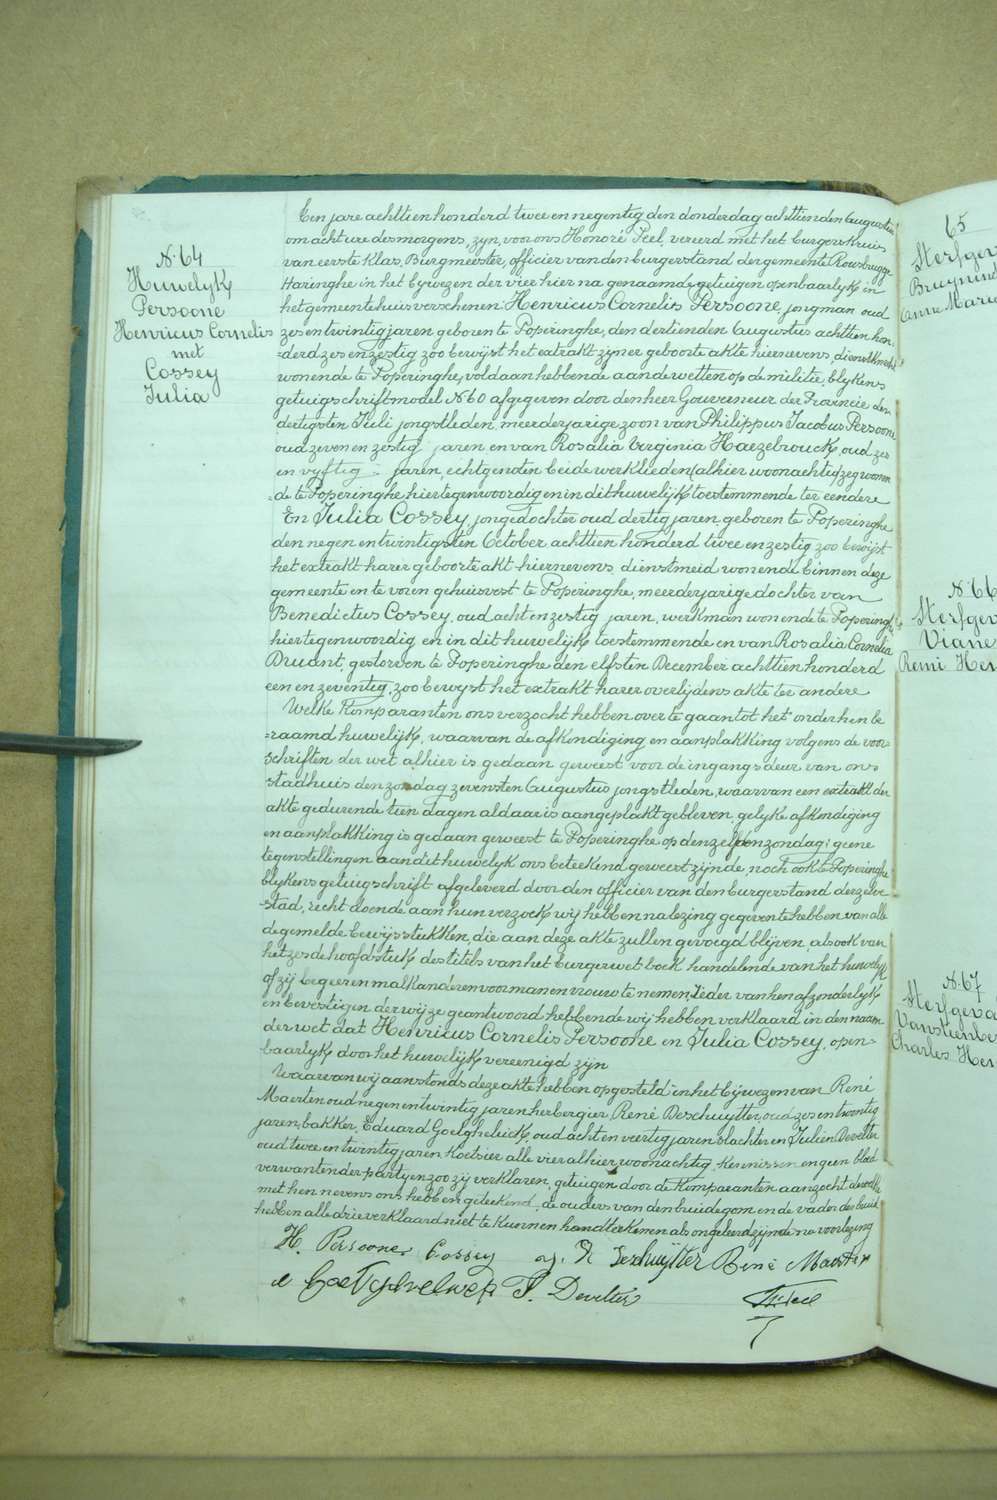 N. 64
Huwelyk
Persoone
Henricus Cornelis
met
Cossey
Julia
Een jare achttien honderd twee en negentig den donderdag achttienden Augusti
om acht ure desmorgens, zyn, voor ons Honoré Peel, vereerd met het burgerskruis
van eerste klas, Burgmeester, officier van den burgerstand der gemeente Rousbrugge
Haringhe in het bywezen der vier hier na genaamde getuigen openbaarlyk in
het gemeentehuis verschenen: Henricus Cornelis Persoone, jongman oud
zes en twintig jaren geboren te Poperinghe, den dertienden Augustus achttien hon„
„derd zes en zestig zoo bewyst het extrakt zyner geboorte akte hiernevens, dienstknecht
wonende te Poperinghe, voldaan hebbende aan de wetten op de militie, blykens
getuigschrift model N. 60 afgegeven door den heer Gouverneur der Provincie den
dertigsten Juli jongstleden, meerderjarige zoon van Philippus Jacobus Persoone
oud zeven en zestig jaren en van Rosalia Verginia Haezebrouck, oud zes
en vyftig jaren, echtgenoten beide werklieden (alhier woonachtig) zeg wonen
„de te Poperinghe hiertegenwoordig en in dit huwelijk toestemmende ter eendere
En Julia Cossey, jongedochter oud dertig jaren, geboren te Poperinghe
den negen en twintigsten October achttien honderd twee en zestig zoo bewijst
het extrakt harer geboorte akt hiernevens, dienstmeid wonende binnen deze
gemeente en te voren gehuisvest te Poperinghe, meerderjarige dochter van
Benedictus Cossey, oud acht en zestig jaren, werkman wonende te Poperinghe
hiertegenwoordig en in dit huwelijk toestemmende en van Rosalia Cornelia
Druant, gestorven te Poperinghe den elfsten December achttien honderd
een en zeventig, zoo bewyst het extrakt harer overlijdens akte ter andere
Welke Komparanten ons verzocht hebben over te gaan tot het onder hen be
„raamd huwelijk, waarvan de afkondiging en aanplakking volgens de voor„
schriften der wet alhier is gedaan geweest voor de ingangsdeur van ons
stadhuis den zondag zevensten Augustus jongstleden, waarvan een extrakt der
akte gedurende tien dagen aldaar is aangeplakt gebleven, gelyke afkondiging
en aanplakking is gedaan geweest te Poperinghe op denzelfden zondag; geene
tegenstellingen aan dit huwelyk ons beteekend geweest zijnde, noch ook te Poperinghe
blykens getuigschrift afgeleverd door den officier van den burgerstand derzelve
stad, recht doende aan hun verzoek wij hebben na lezing gegeven te hebben van alle
de gemelde bewijsstukken, die aan deze akte zullen gevoegd blijven, als ook van
het zesde hoofdstuk des titels van het burgerwetboek handelende van het huwelyk
of zij begeeren malkanderen voor man en vrouw te nemen, Ieder van hen afzonderlyk
en bevestigenderwijze geantwoord hebbende wij hebben verklaard in den naam
der wet dat Henricus Cornelis Persoone en Julia Cossey, open„
baarlyk door het huwelijk vereenigd zijn
Waarvan wij aanstonds deze akte hebben opgesteld in het bijwezen van René
Maerten oud negen en twintig jaren herbergier, René Deschuytter, oud zes en twintig
jaren, bakker, Eduard Goelghelück, oud acht en veertig jaren slachter en Julien Develter
oud twee en twintig jaren Koetsier alle vier alhier, woonachtig Kennissen en geen bloed
verwanten der partyen zoo zij verklaren, getuigen door de Komparanten aanzocht dewelke
met hen nevens ons hebben geteekend, de ouders van den bruidegom en de vader der bruid
hebben alle drie verklaard niet te kunnen handteekenen als ongeleerd zijnde na voorlezing
H. Persoone Cossey R Deschuytter René Maerten
J. Develter
65
N. 66
Sterfgev
Viane
Remi Hen
N. 67
Sterfgeva
Charles Hen